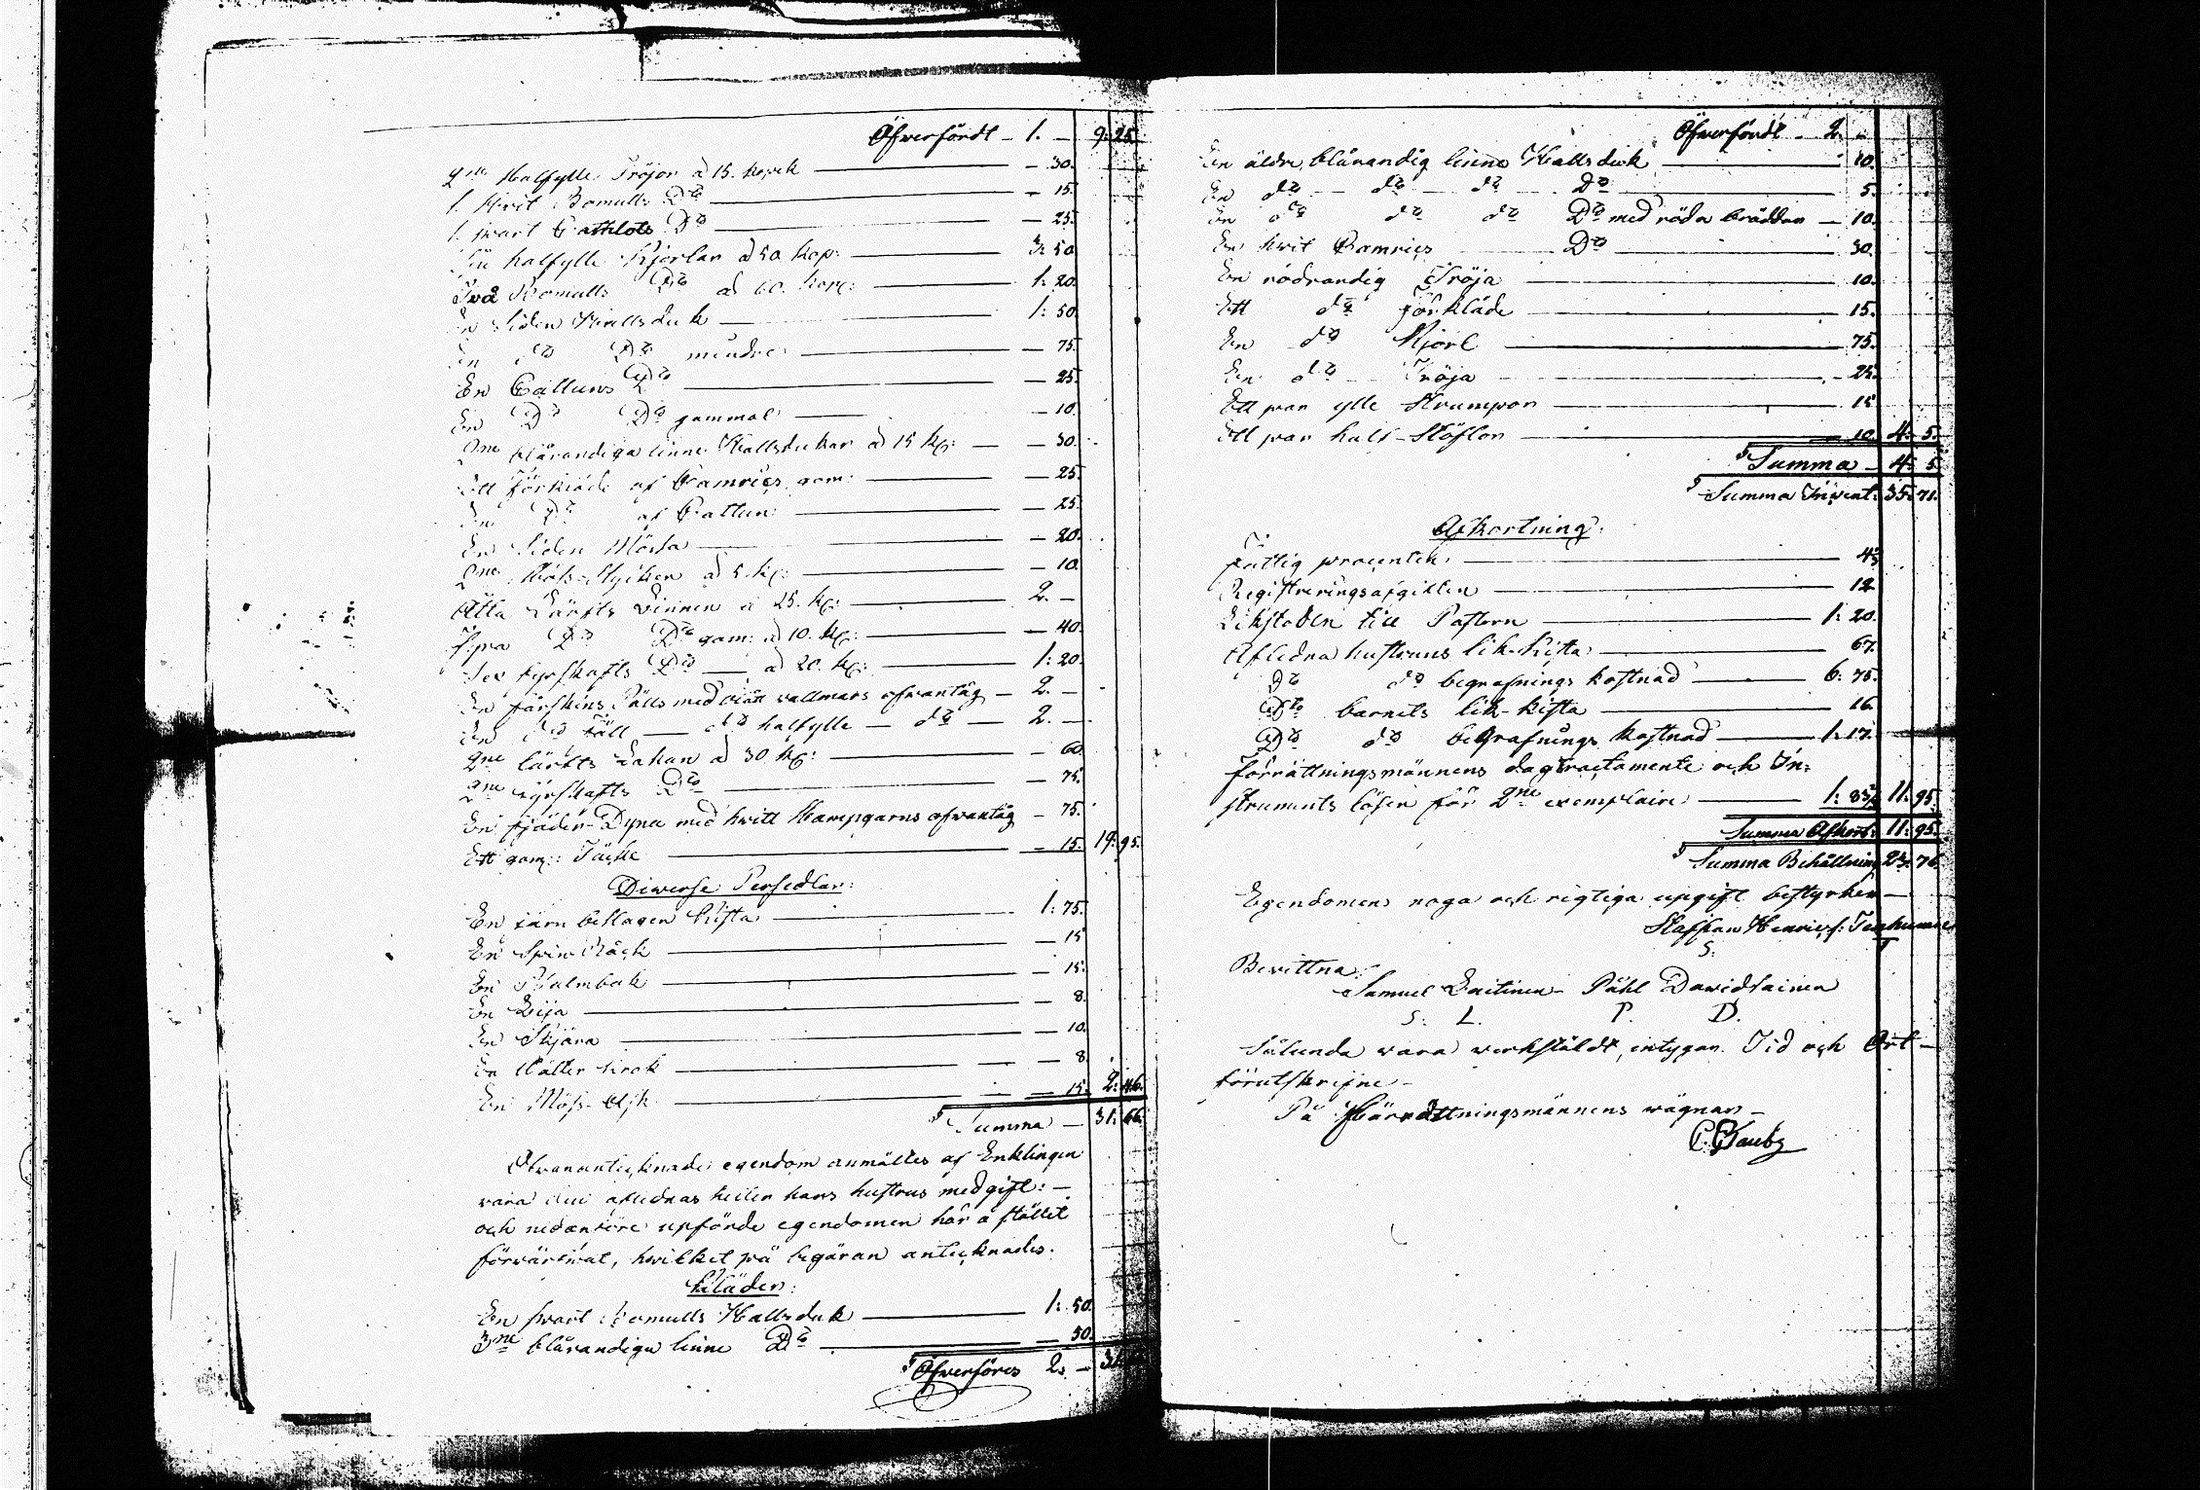 Öfwerfördt - 1. - 9: 25.
2ne Halfylle Tröjor a 15. kopek - 30.
1. Hvit Bomulls Do - 15.
1. svart Do - 25.
Sju halfylle Kjorlar a 50 kop: 3: 50
Två Bomulls Do a 60. kope: 1: 20.
En Siden Hallsduk 1: 50.
En do Do mindre - 75.
En Cattuns Do - 25.
En Do Do gammal - 10.
2ne blårandiga linne Hallsdukar a 15 kp: - 30.
Ett förkläde af Camrics gam: - 25.
En Do af Cattun - 25.
En Siden Mössa - 20.
2ne Stycken a 5. kp: - 10.
Åtta Lärfts Linnen a 25. kp: 2. -
Fyra Do Do gam: a 10. kp: - 40.
Sex fyrskafts Do a 20. kp: 1: 20.
En fårskins Fälls med blått vallmars ofwantåg - 2. -
En do Fäll do halfylle - do - 2. -
2ne lärfts Lakan a 30 kp: - 60.
2ne fyrskafts Do - 75.
En fjäder Dyna med hvitt Hampgarns ofwantåg - 75.
Ett gam: Täcke - 15. 19: 95.
Diverse Persedlar:
En järn beslagen Kista 1: 75.
En Spin Råck - 15
En Psalmbok - 15.
En Lija - 8.
En Skjära - 10.
En krok - 8.
En Möss-Ask - 15. 2: 46.
Summa - 31: 66.
Ofvanantecknade egendom anmältes af Enklingen
vara den aflednas hustrus medgift: -
och nedanföre upförde egendomen här å stället
förvärfvat, hwilket på begäran antecknades.
Kläder:
En svart Bomulls Hallsduk 1: 50.
3ne blårandiga linne Do - 50.
Öfwerföres 2. - 31:
Öfwerfördt - 2. -
En äldre blårandig linne Hallsduk - 10.
En do - do - do - Do 5.
En do do do Do med röda brädder - 10.
En hvit Camrics Do 30.
En rödrandig Tröja 10.
Ett do förkläde 15.
En do Kjorl 75.
En do Tröja - 25.
Ett par ylle Strumpor 15
Ett par half-Stöflor - 10. 4: 5.
Summa - 4: 5.
Summa Invent: 35: 71.
Afkortning:
Fattig procenten 4 1/2
Registreringsafgiften 12
Likstolen till Pastorn 1: 20.
Afledna hustruns lik-kista 67.
Do do begrafnings kostnad 6: 75.
Do barnets lik-kista 16.
Do do begrafnings kostnad 1: 17.
Förrättningsmännens dagtractamente och In-
struments lösen för 2ne exemplaire 1: 83 1/2 11: 95.
Summa Afkort: 11: 95.
Summa Behållning 23: 76.
Egendomens noga och rigtiga upgift bestyrker -
Staffan Henrics:
S: T
Bevittna:
Samuel Laitinen - Påhl Davidsainen
S: L. P. D.
Sålunda vara verkstäldt, intygar. Tid och Ort -
förutskrifne -
På Förrättningsmännens wägnar -